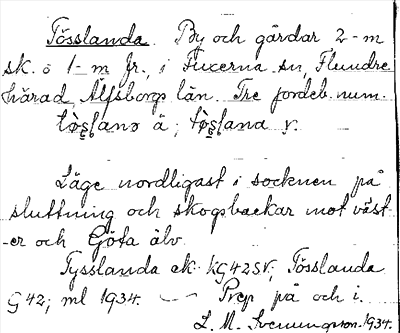 Tösslanda. By och gårdar 2-m
sk. o 1-m fr., i Fuxerna sn, Flundre
härad Älfsborgs län. Tre jordeb. num.
tøs̥lanɘ ä; tøs̥lana y.
Läge nordligast i socknen på
sluttning och skogsbackar mot väst
-er och Göta älv.
Tysslanda ek KG42SV; Tösslanda
G42; ml 1934. — Prep på och i.
L. M. Svenungsson 1934.